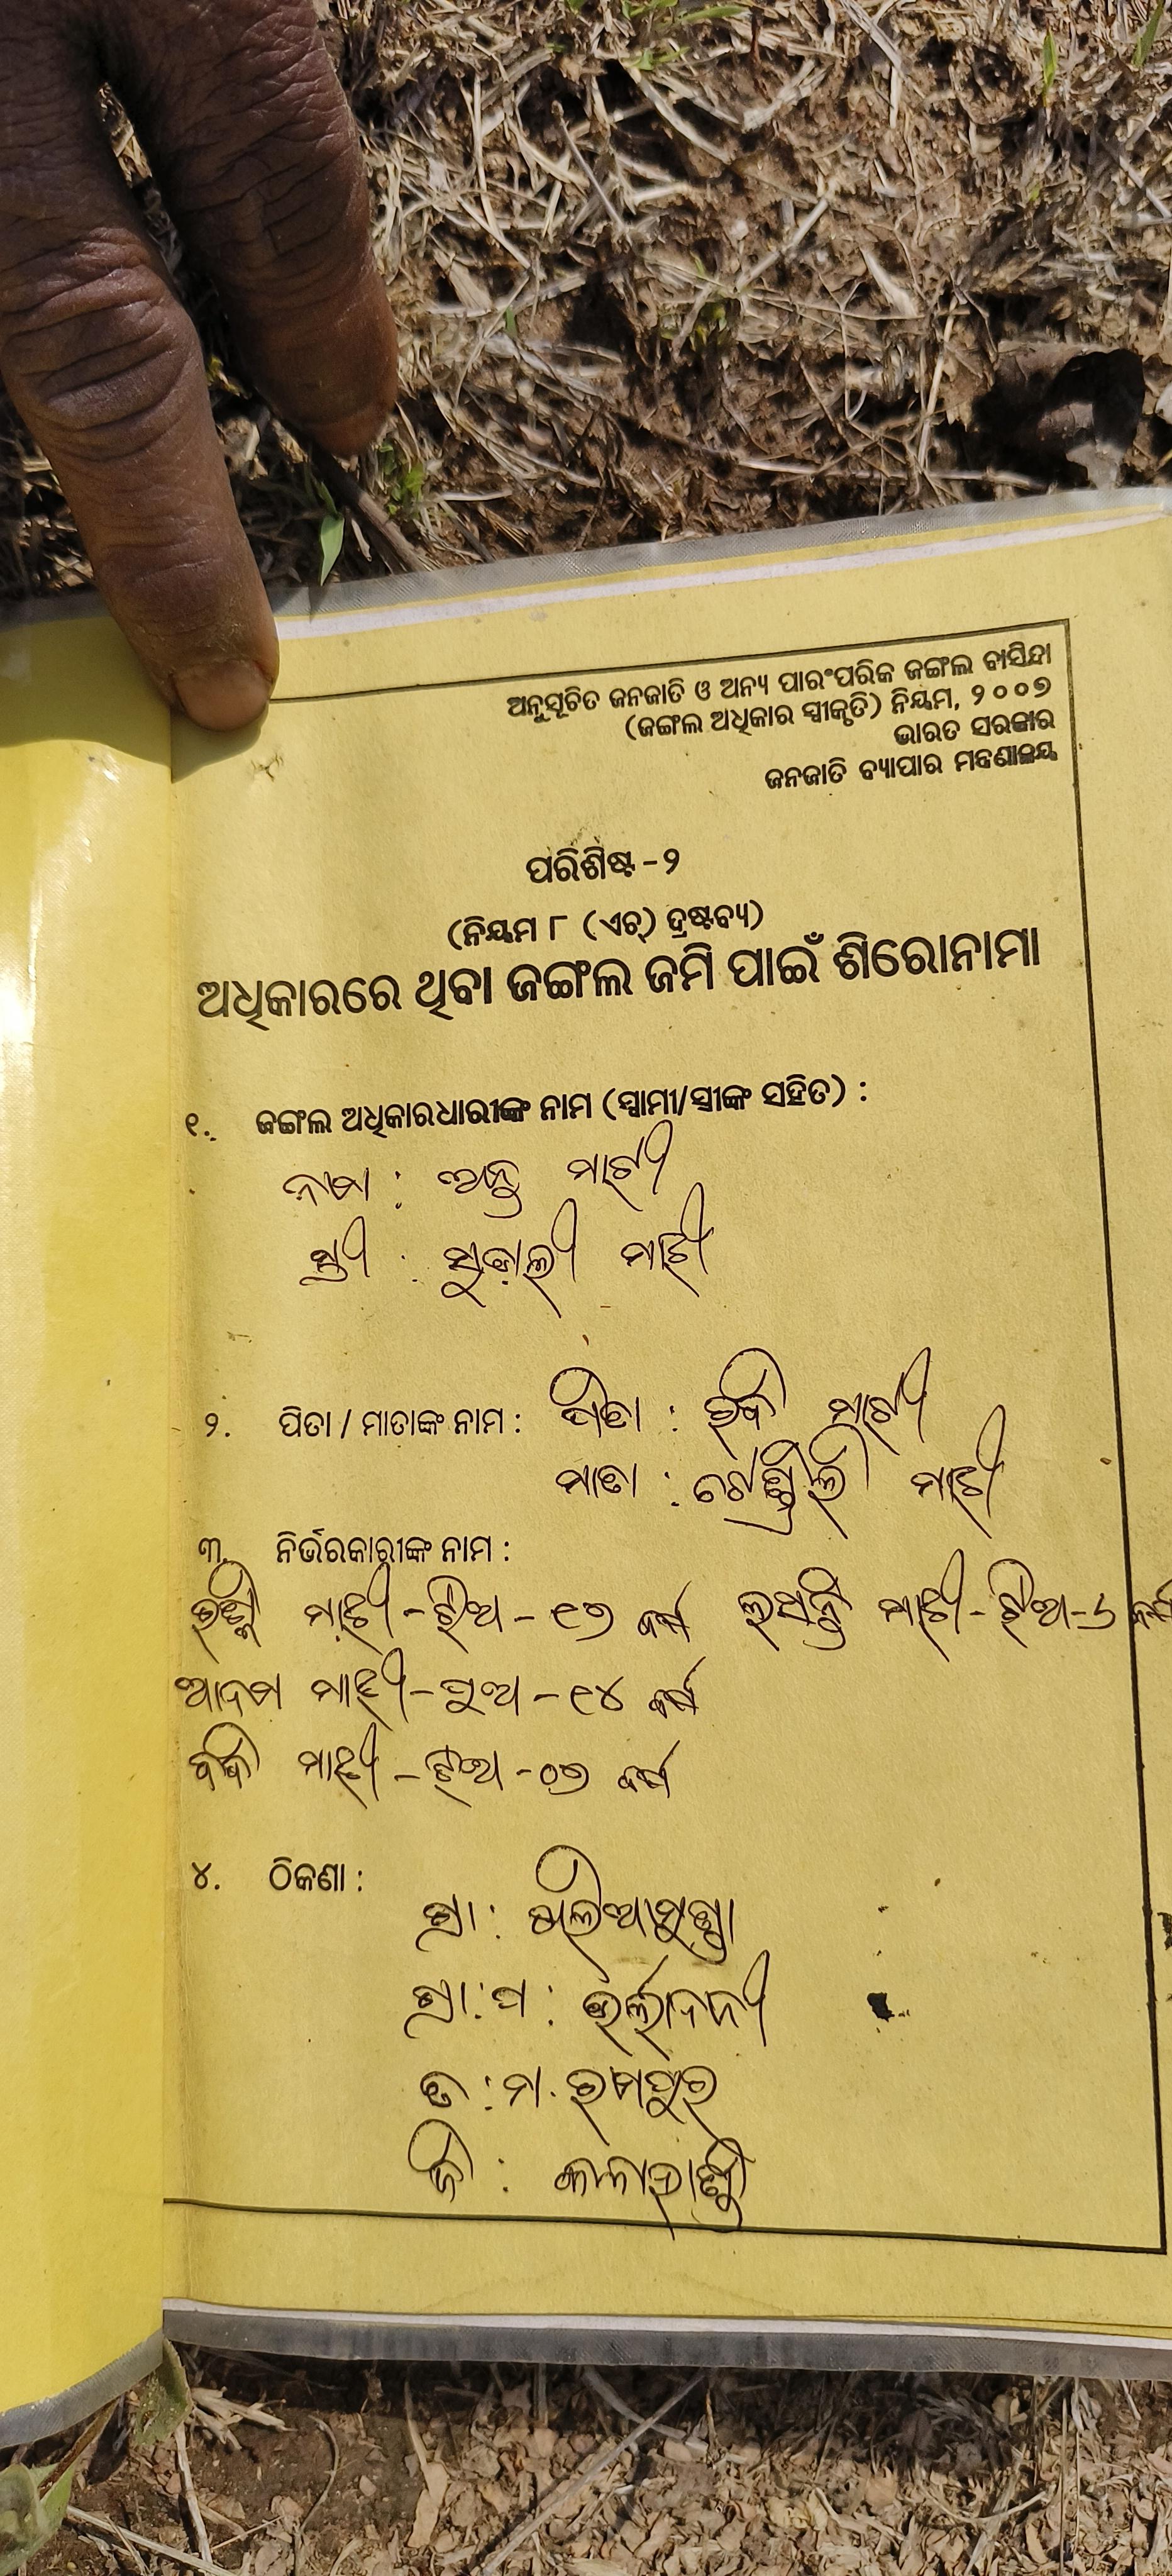 ଅନୁସୂଚିତ ଜନଜାତି ଓ ଅନ୍ୟ ପାରଂପରିକ ଜଙ୍ଗଲ ବାସିନ୍ଦା
(ଜଙ୍ଗଲ ଅଧିକାର ସ୍ୱୀକୃତି) ନିୟମ, ୨୦୦୭
ଭାରତ ସରକାର
ଜନଜାତି ବ୍ୟାପାର ମନ୍ତ୍ରଣାଳୟ
ପରିଶିଷ୍ଟ -୨
(ନିୟମ ୮ (ଏଚ୍) ଦ୍ରଷ୍ଟବ୍ୟ)
ଅଧିକାରରେ ଥିବା ଜଙ୍ଗଲ ଜମି ପାଇଁ ଶିରୋନାମା
୧. ଜଙ୍ଗଲ ଅଧିକାରଧାରୀଙ୍କ ନାମ (ସ୍ୱାମୀ/ସ୍ତ୍ରୀଙ୍କ ସହିତ) :
ନାମ : ମାଝୀ
ସ୍ତ୍ରୀ : ମାଝୀ
୨. ପିତା / ମାତାଙ୍କ ନାମ : ପିତା : ମାଝୀ
ମାତା : ମାଝୀ
୩. ନିର୍ଭରକାରୀଙ୍କ ନାମ :
ମାଝୀ - ଝିଅ - ୧୭ ବର୍ଷ ମାଝୀ - ଝିଅ - ୬ ବର୍ଷ
ଆଦମ ମାଝୀ - ପୁଅ - ୧୪ ବର୍ଷ
ମାଝୀ - ଝିଅ - ୦୭ ବର୍ଷ
୪. ଠିକଣା :
ଗ୍ରା :
ଗ୍ରା : ପ :
ତ : ମ. ରାମପୁର
ଜି : କଳାହାଣ୍ଡି